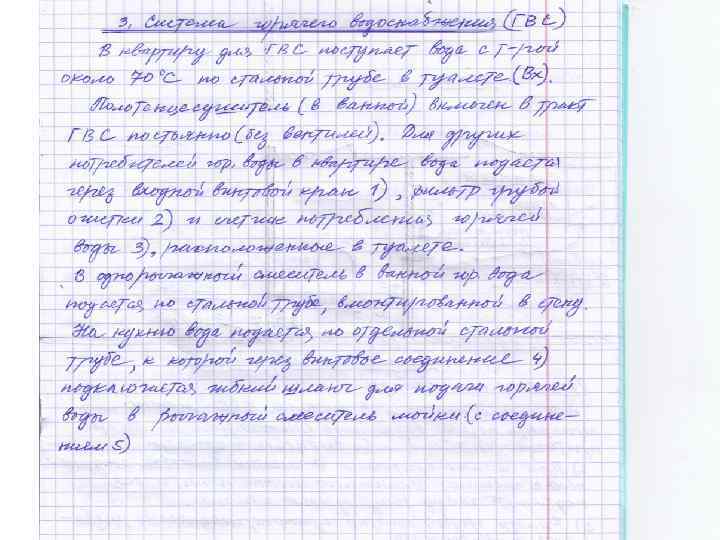 3. Система горячего водоснабжения (ГВС)
В квартиру для ГВС поступает вода с т-рой
около 70°С по стальной трубе в туалете (Вх).
Полотенцесушитель (в ванной) включен в тракт
ГВС постоянно (без вентилей). Для других
потребителей гор. воды в квартире вода подается
через входной винтовой кран 1), фильтр грубой
очистки 2) и счетчик потребления горячей
воды 3), расположенные в туалете.
В однорычажный смеситель в ванной гор. вода
подается по стальной трубе, вмонтированной в стену.
На кухню вода подается по отдельной стальной
трубе, к которой через винтовое соединение 4)
подключается гибкий шланг для подачи горячей
воды в рычажный смеситель мойки (с соедине-
нием 5)